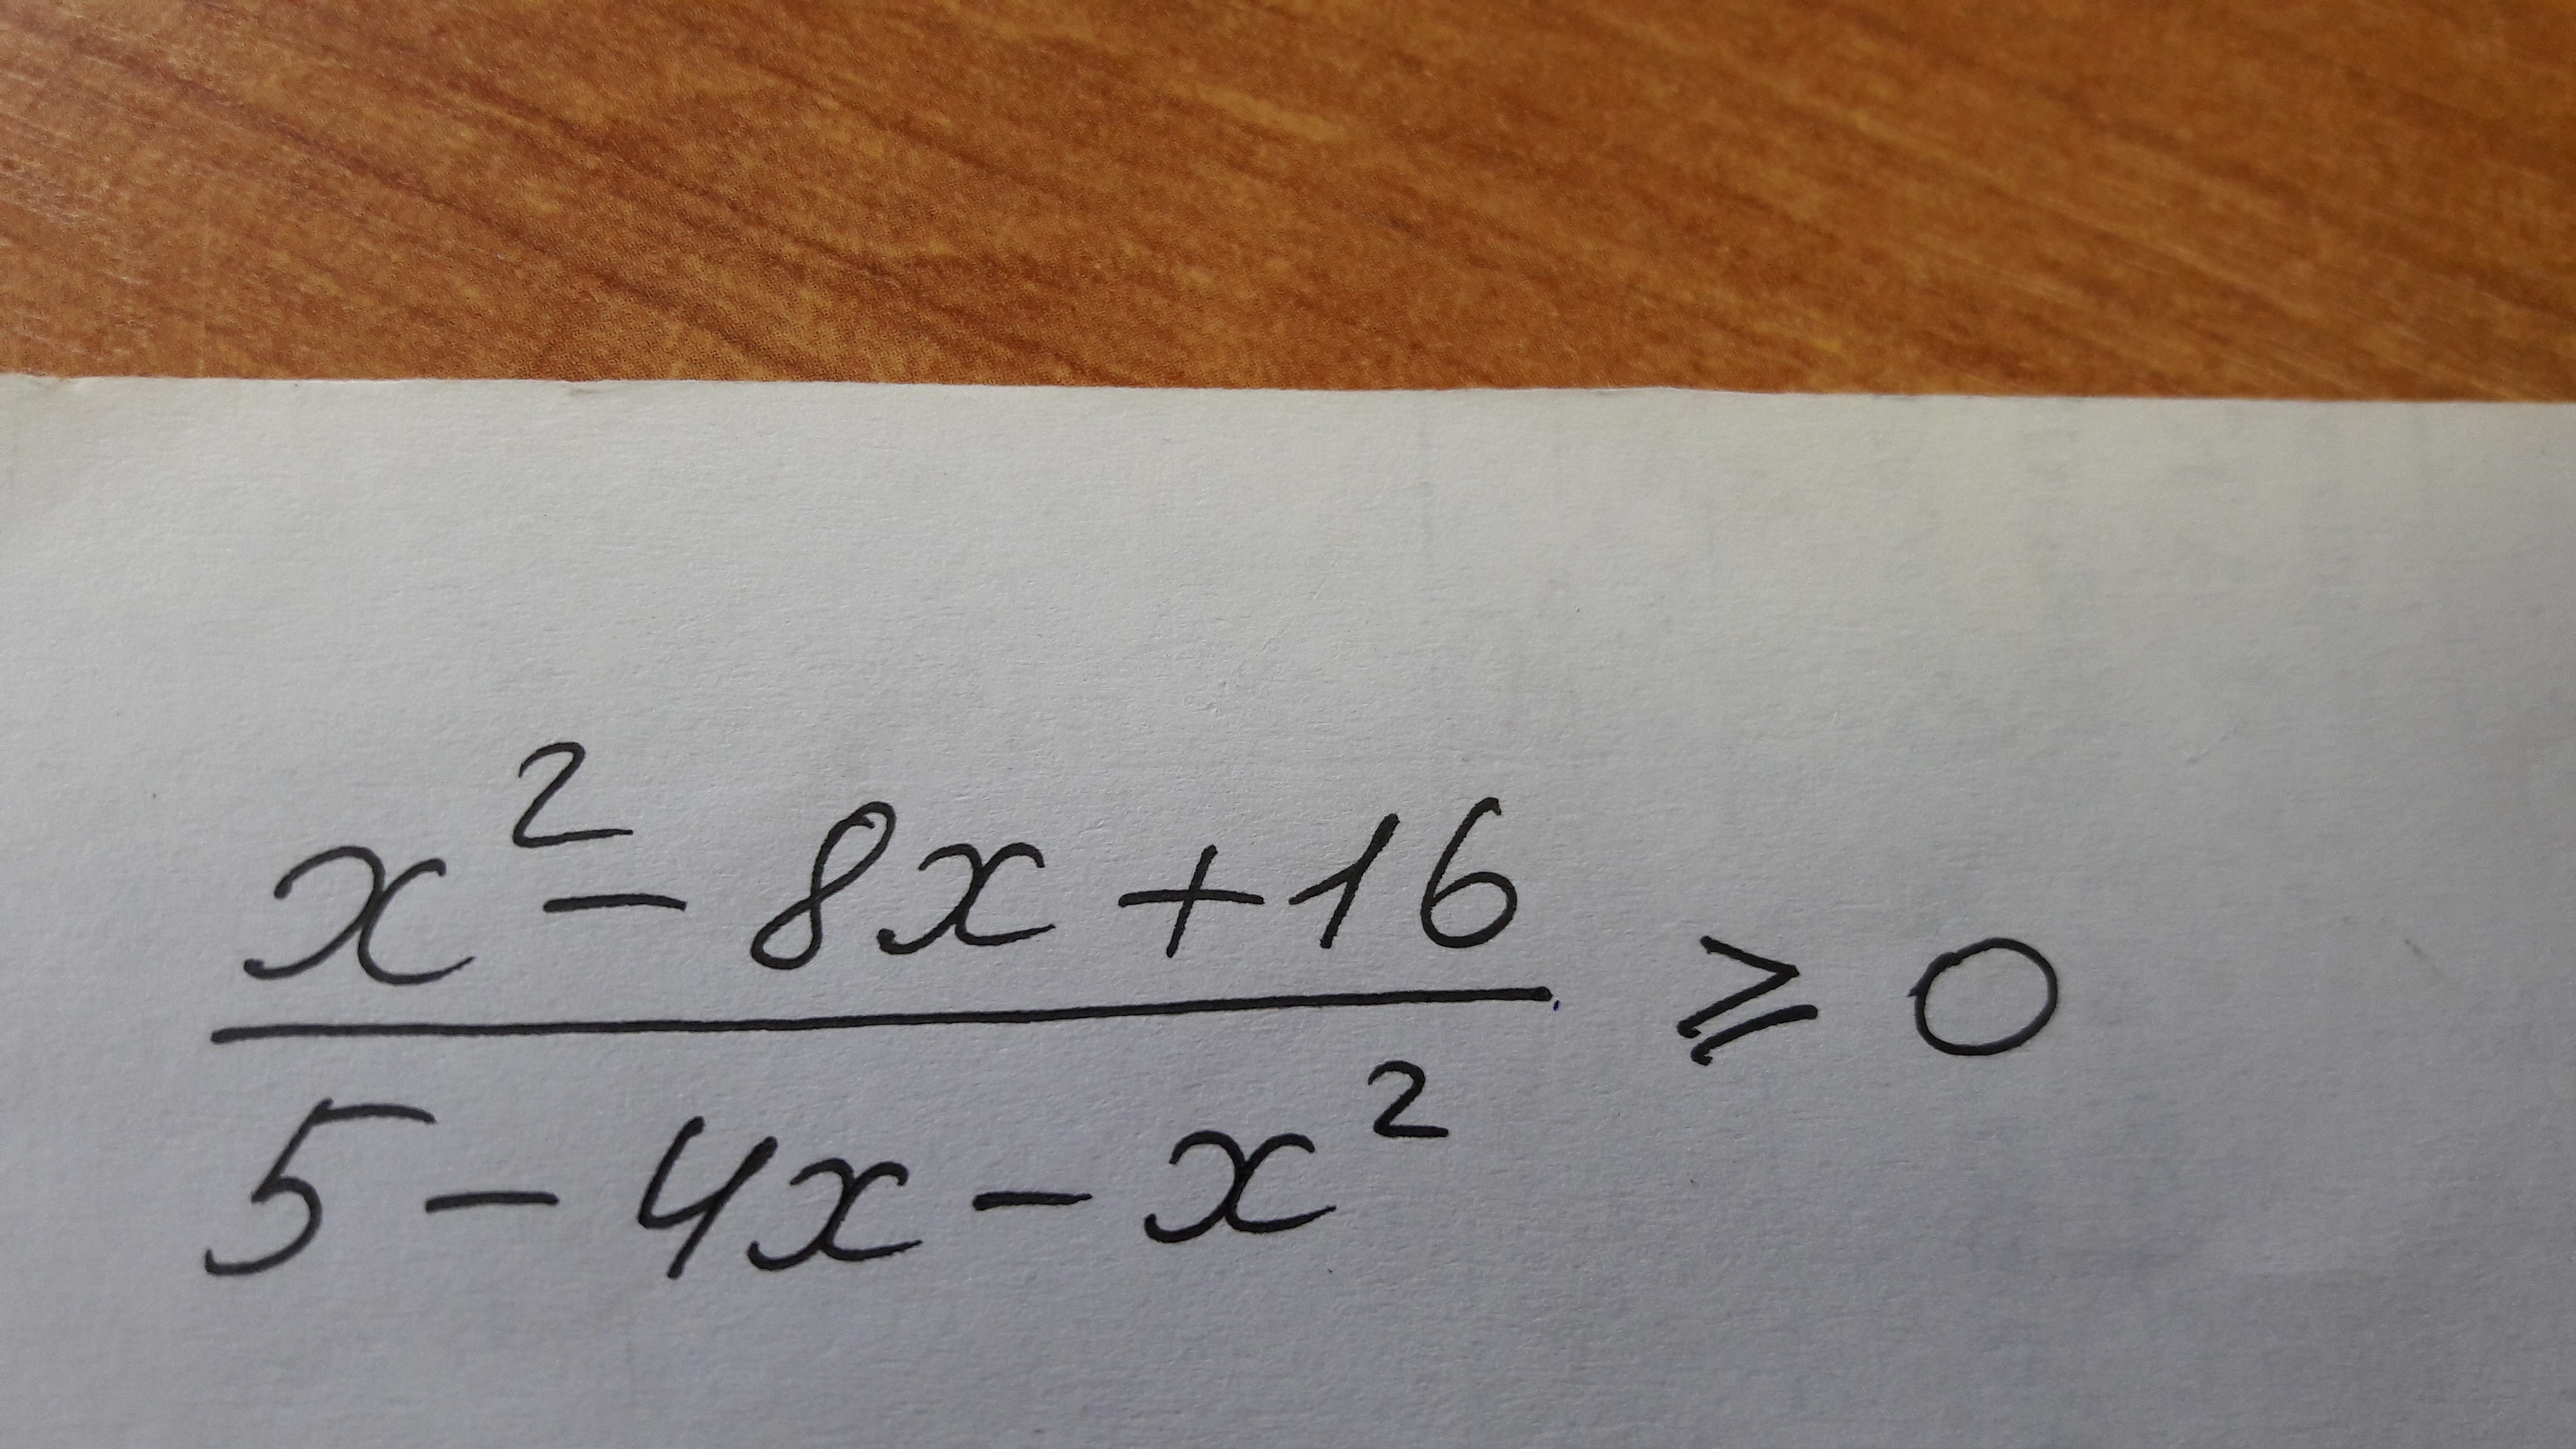 x² - 8x + 16
5 - 4x - x²
⩾ 0